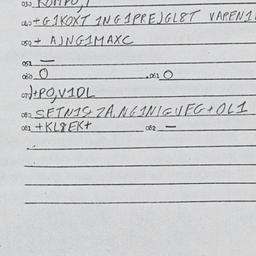 03) KUMPU,1
04) +G1KOXT 1NG1PREJGL8T VAPEN1
05) + AJNG1MAXC
051 —
060 O .061 O
07) )+PO,V1DL
081 SETN1S ZA,NG1N1GVFG+OL1
081 +KL8EK+ 082 —